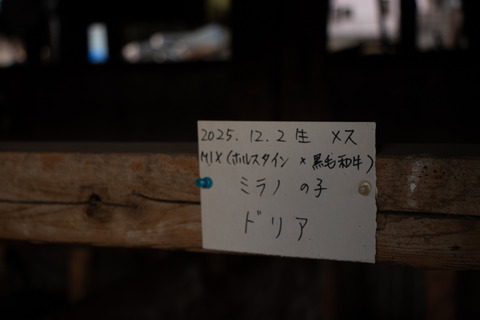 2025.12.2生 メス
MIX(ホルスタイン×黒毛和牛)
ミラノの子
ドリア